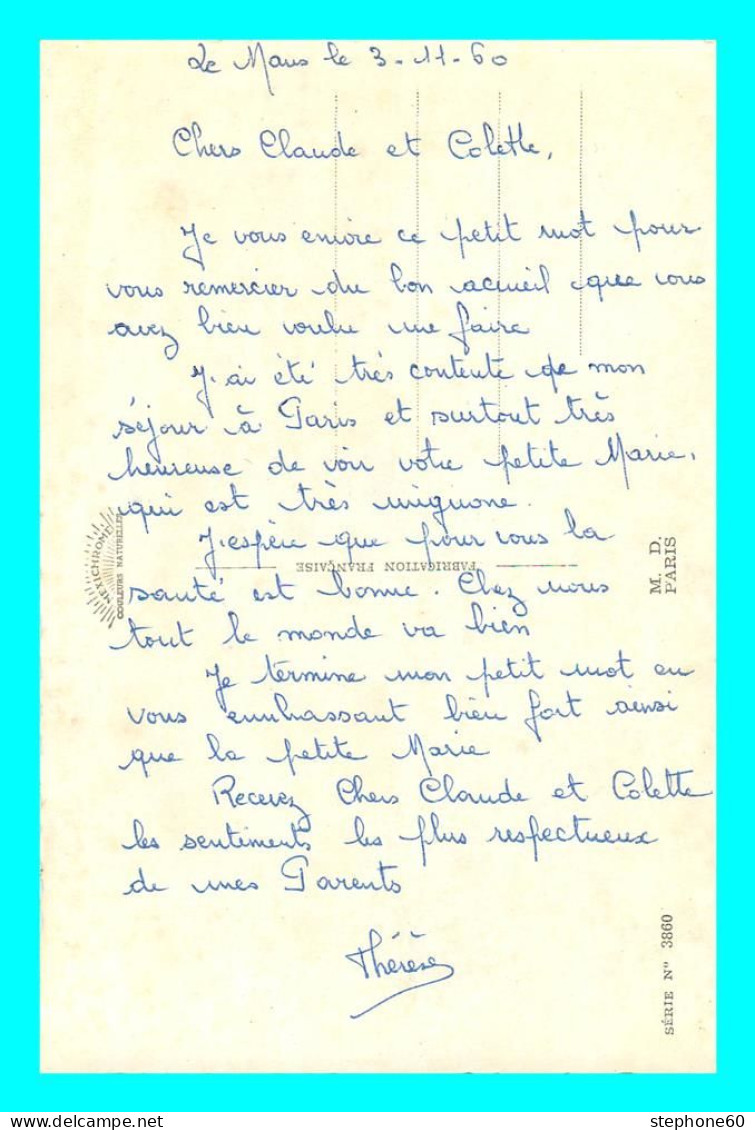 Le Mans le 3-11-60
Chers Claude et Colette,
Je vous envoie ce petit mot pour
vous remercier du bon accueil que vous
avez bien voulu me faire
J'ai été très contente de mon
séjour à Paris et surtout très
heureuse de voir votre petite Marie,
qui est très mignone.
J'espère que pour vous la
santé est bonne. Chez nous
tout le monde va bien
Je termine mon petit mot en
vous embrassant bien fort ainsi
que la petite Marie
Recevez Chers Claude et Colette
les sentiments les plus respectueux
de mes Parents
Thérèse
MEXICHROME
COULEURS NATURELLES
FABRICATION FRANÇAISE
M. D.
PARIS
SÉRIE N° 3860
stephone60